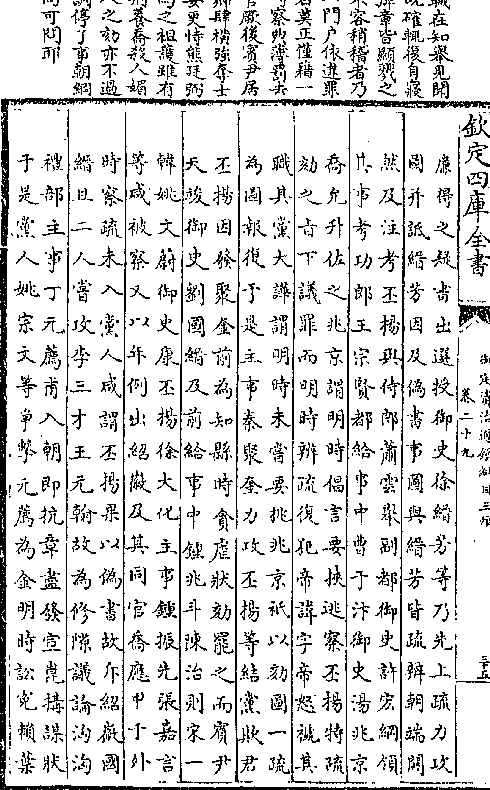 職在知舉見聞
既確輒復自寢
彈章皆顯戮之
不容稍稽者乃
門戶依違罪
名莫正僅藉一
考察典薄罰去
官厥後賓尹居
鄉肆橫強奪士
妻更恃熊廷弼
為之袒護雖有
荊養喬殺人媚
人之劾亦不過
調停了事朝綱
尚可問耶
欽定四庫全書
御定資治通鑑綱目三編
卷二十九
廉得之疑書出選授御史徐縉芳等乃先上疏力攻
圖并詆縉芳因及偽書事圖與縉芳皆疏辨朝端閧
然及注考丕揚與侍郎蕭雲舉副都御史許宏綱領
其事考功郎王宗賢都給事中曹于汴御史湯兆京
喬允升佐之兆京謂明時倡言要挾逃察丕揚特疏
劾之㫖下議罪而明時辨疏復犯帝諱字帝怒褫其
職其黨大譁謂明時未嘗要挾兆京衹以劾圖一疏
為圖報復于是主事秦聚奎力攻丕揚等結黨欺君
丕揚因發聚奎前為知縣時貪虐狀劾罷之而賓尹
天峻御史劉國縉及前給事中鍾兆斗陳治則宋一
韓姚文蔚御史康丕揚徐大化主事鍾振先張嘉言
等咸被察又以年例出紹徽及其同官喬應甲于外
時察疏未入黨人咸謂丕揚果以偽書故斥紹徽國
縉且二人嘗攻李三才王元翰故為修隙議論洶洶
禮部主事丁元薦甫入朝即抗章盡發宣崑搆謀狀
于是黨人姚宗文等爭擊元薦為金明時訟寃賴葉